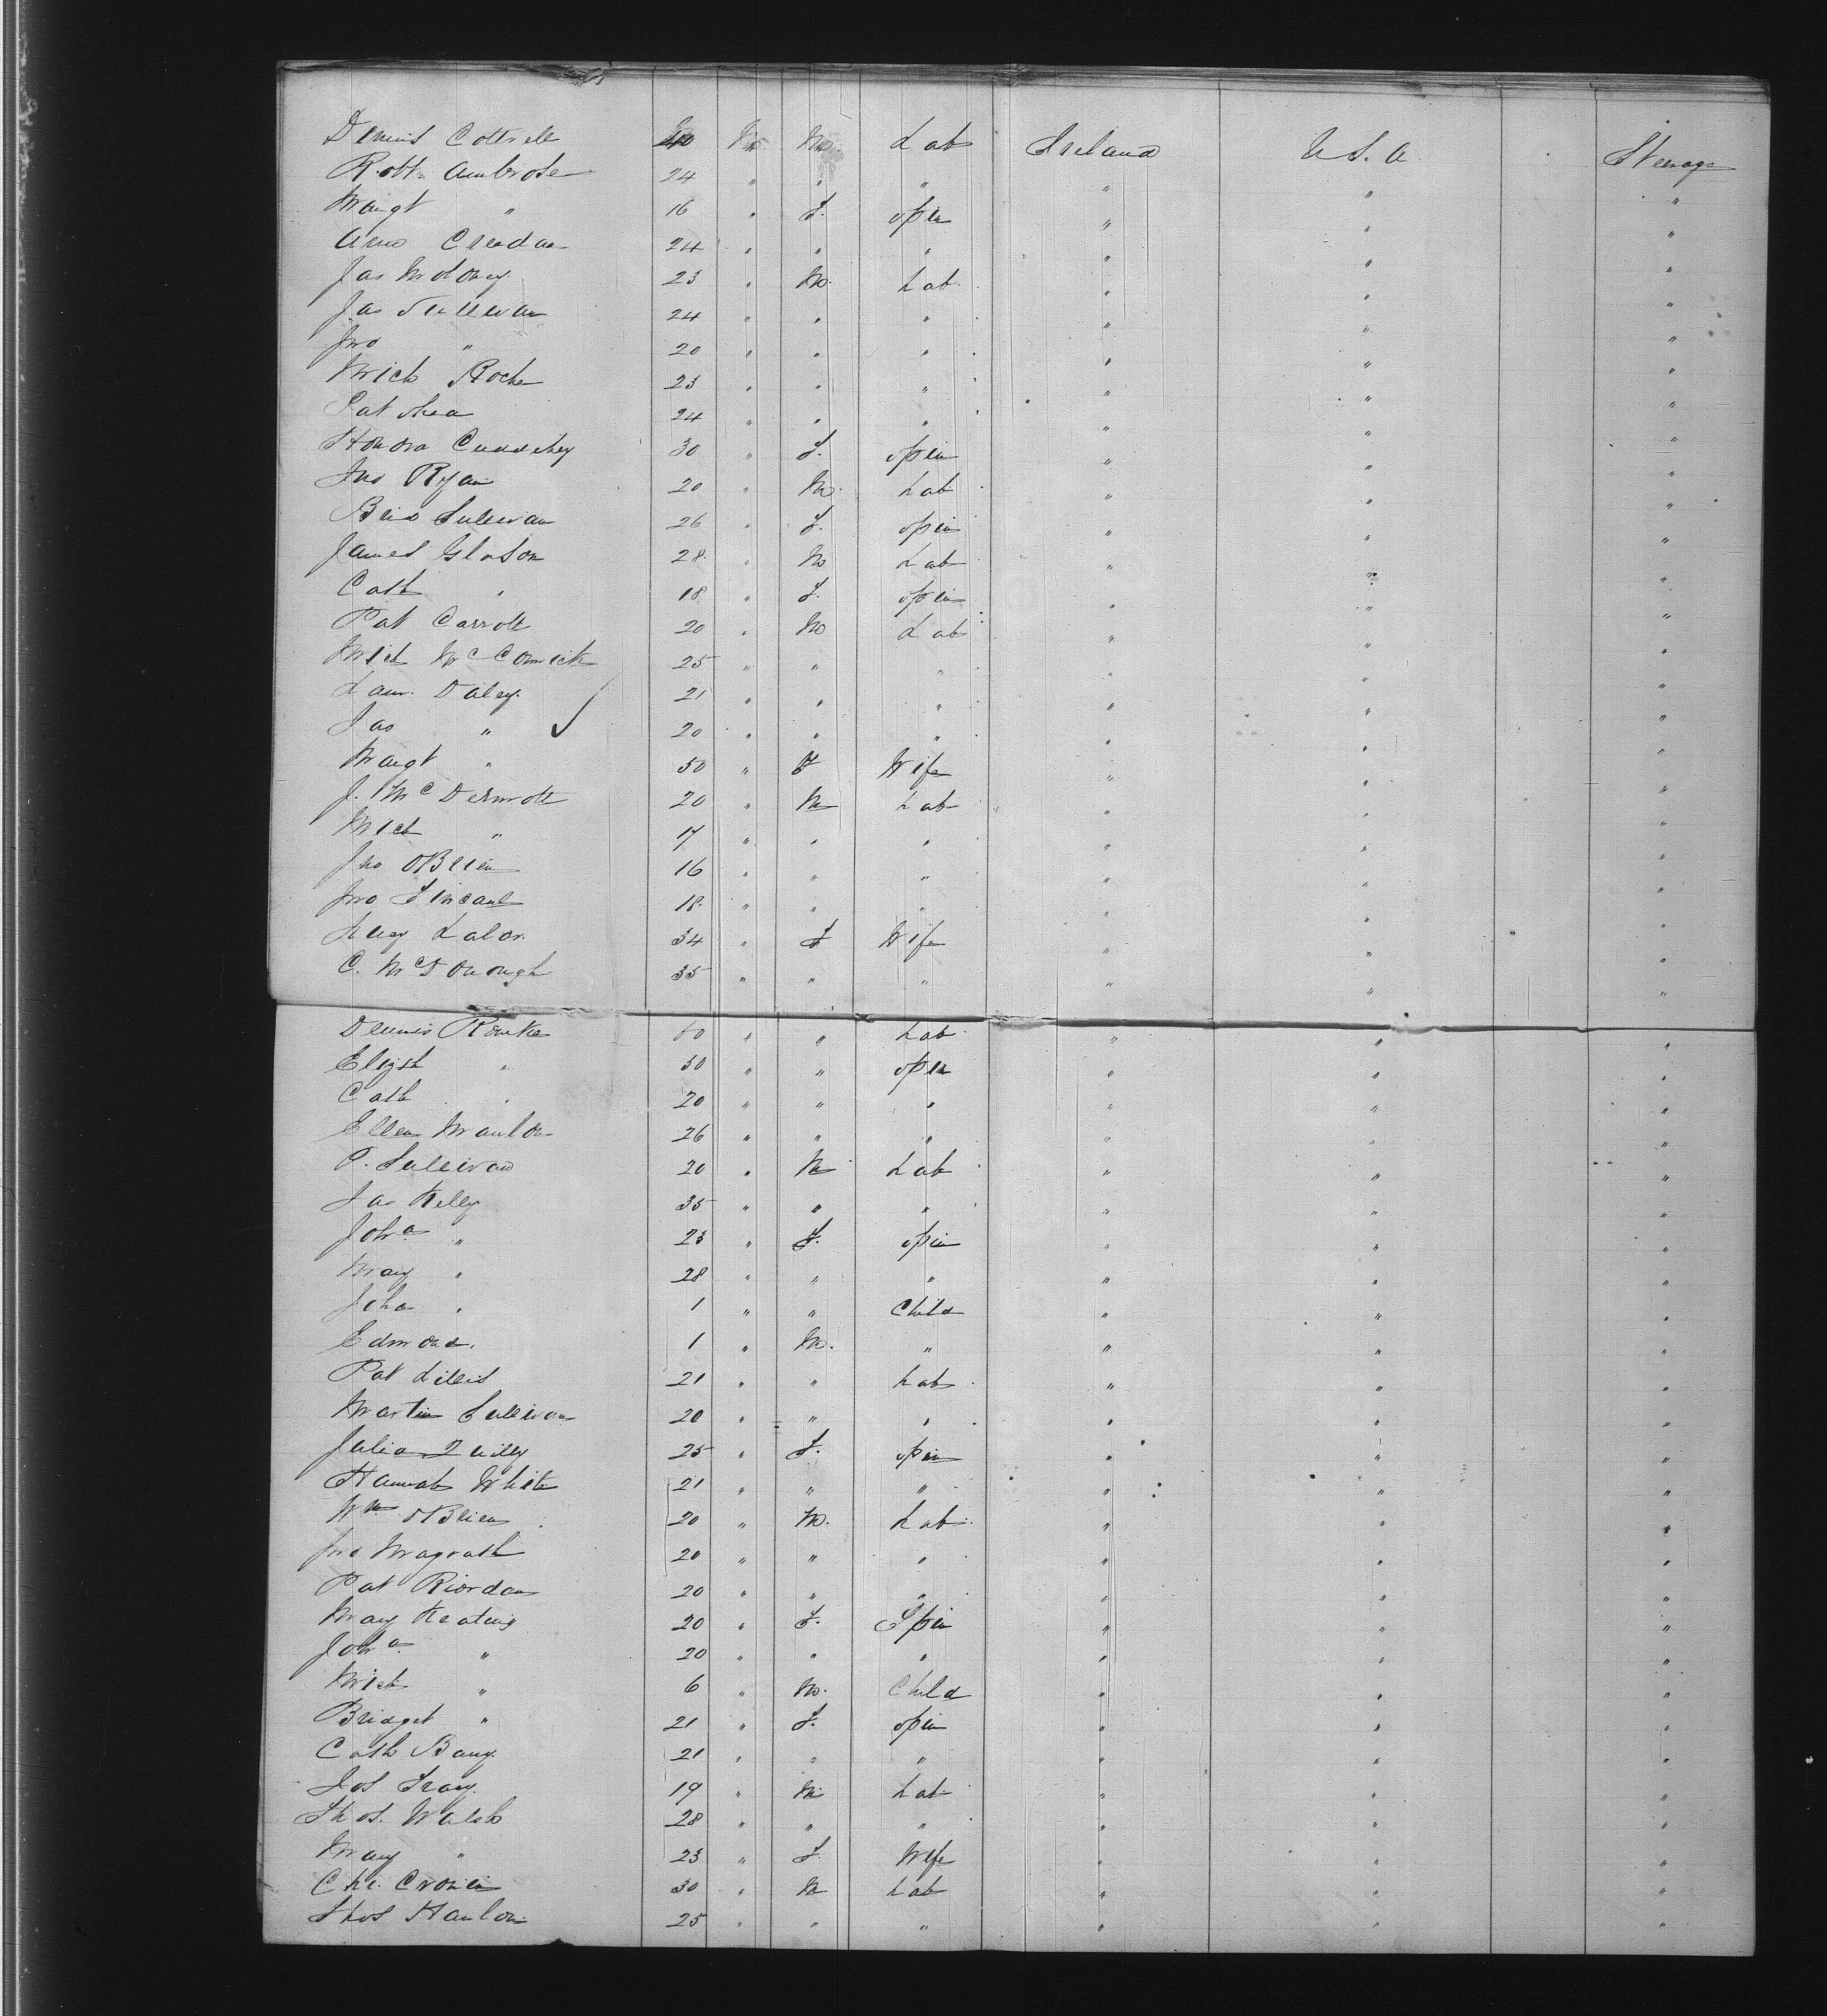 Dennis Cottrell 40 M Lab Ireland U.S.A Steerage
Robt. Ambrose 24 " " " " " "
Margt " 16 " F. Spin " " "
24 " " " " " "
Jas Moloney 23 " M. Lab " " "
Jas Sullivan 24 " " " " " "
Jno " 20 " " " " " "
Mich Roche 23 " " " " " "
Pat Shea 24 " " " " " "
Honora Cuddihy 30 " F. Spin " " "
Jno Ryan 20 " M. Lab " " "
Sullivan 26 " F. Spin " " "
James Glason 28 " M Lab " " "
Cath " 18 " F. Spin " " "
Pat Carroll 20 " M Lab " " "
Mich McComick 25 " " " " " "
Law. Daley. 21 " " " " " "
Jas " ✓ 20 " " " " " "
Margt " 50 " F Wife " " "
J. McDermott 20 " M Lab " " "
Mich " 17 " " " " " "
Jno OBrien 16 " " " " " "
Jno 18 " " " " " "
Lucy Lalor. 34 " F Wife " " "
C. McDonough 35 " " " " " "
Dennis Rourke 60 " " Lab " " "
Elizth " 50 " " Spin " " "
Cath " 20 " " " " " "
Ellen Manlon 26 " " " " " "
P. Sullivan 20 " M Lab " " "
Jas Kelly 35 " " " " " "
Joha " 23 " F. Spin " " "
Mary " 28 " " " " " "
Joha " 1 " " Child " " "
Edmond. 1 " M. " " " "
Pat Lillis 21 " " Lab " " "
Martin Sullivan 20 " " " " " "
Julia Quilty 25 " F. Spin " " "
Hannah White 21 " " " " " "
Wm OBrien 20 " M. Lab " " "
Jno Magrath 20 " " " " " "
Pat Riordan 20 " " " " " "
Mary Keating 20 " F. Spin " " "
Joha " 20 " " " " " "
Mich " 6 " M. Child " " "
Bridget " 21 " F. Spin " " "
Cath Barry. 21 " " " " " "
Jos Tracy. 19 " M Lab " " "
Thos. Walsh 28 " " " " " "
Mary " 23 " F. Wife " " "
Chr. Cronin 30 " M Lab " " "
Thos Hanlon 25 " " " " " "